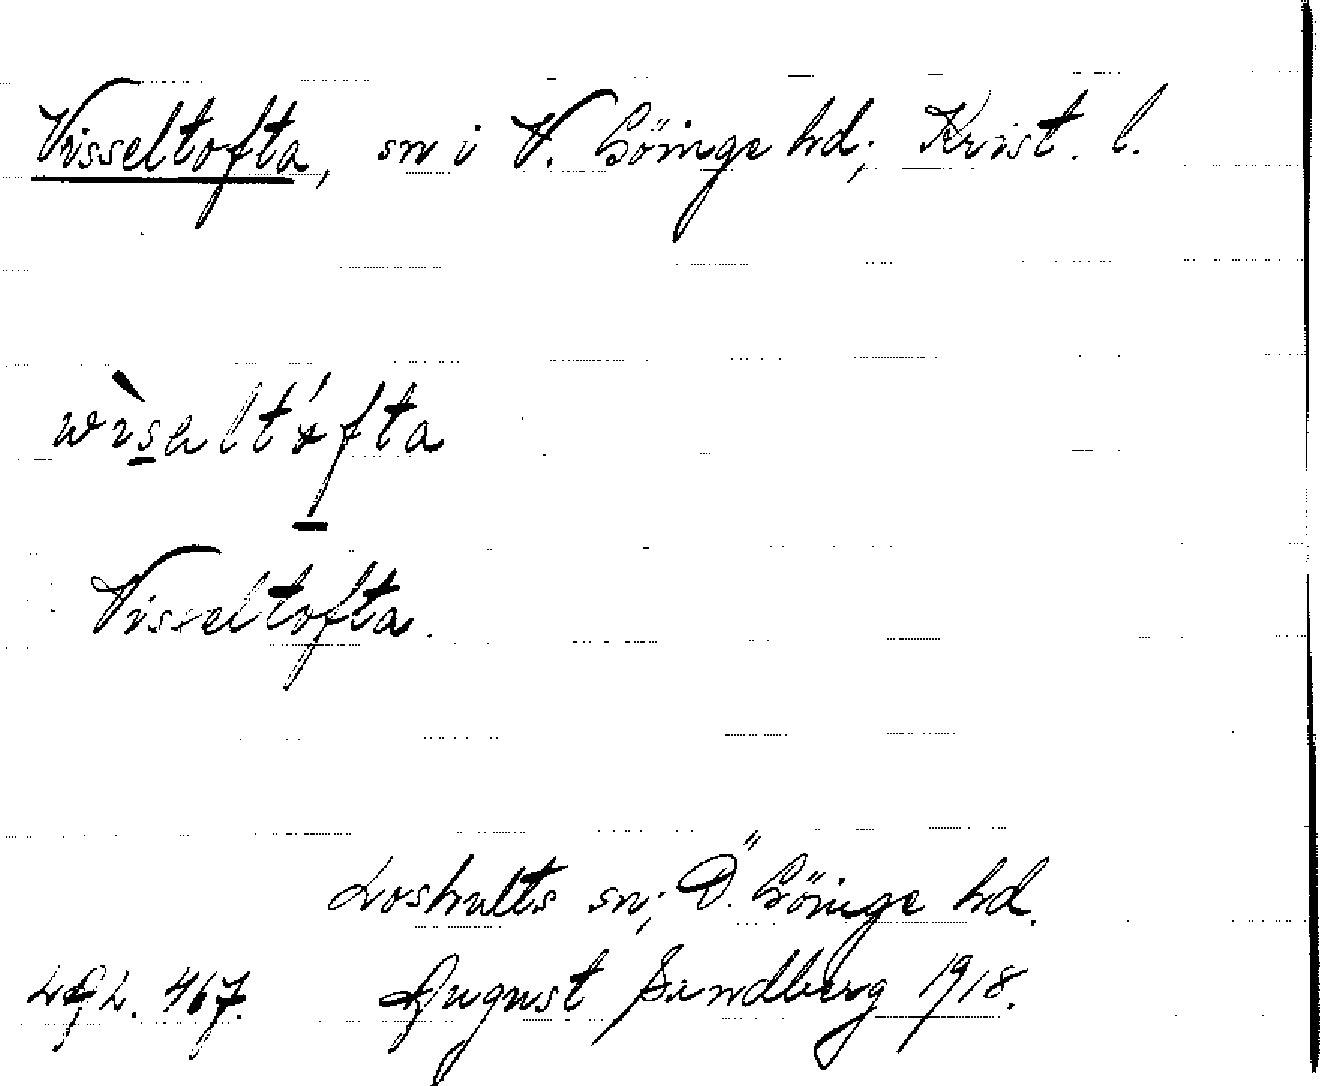 Visseltofta, sn i V. Göinge hd; Krist. l.
wìsaltáfta
Visseltofta.
Loshults sn; Ö. Göinge hd.
LAL. 467. August Sundberg 1918.